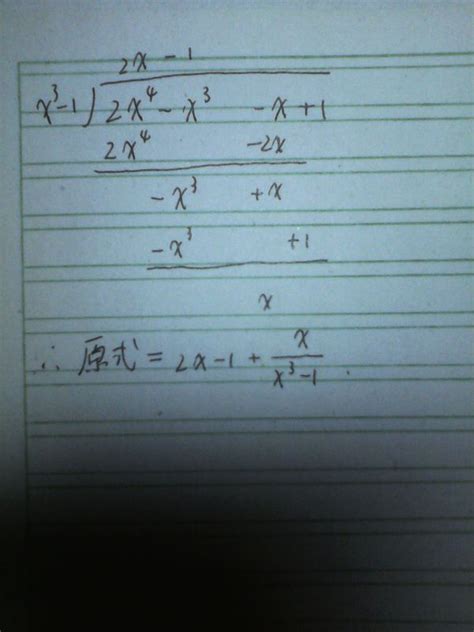 2x - 1
x³-1 ) 2x⁴ - x³ - x + 1
2x⁴ - 2x
- x³ + x
- x³ + 1
x
∴ 原式 = 2x-1 + x/(x³-1) .